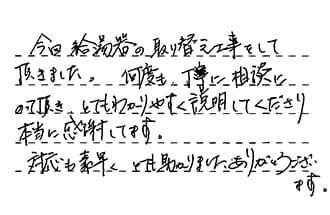 今回給湯器の取り替え工事をして
頂きました。何度も丁寧に相談に
のって頂き、とてもわかりやすく説明してくださり
本当に感謝してます。
対応も素早く、とても助かりました。ありがとうござい
ます。